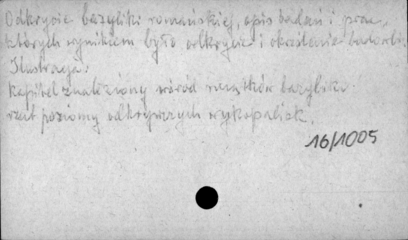 Odkrycie bazyliki romańskiej, opis badań i prac,
których wynikiem było odkrycie i określenie budowli.
Ilustracja:
kapitel znaleziony wśród resztków bazyliki
rzut poziomy odkrywczych wykopalisk.
16/1005